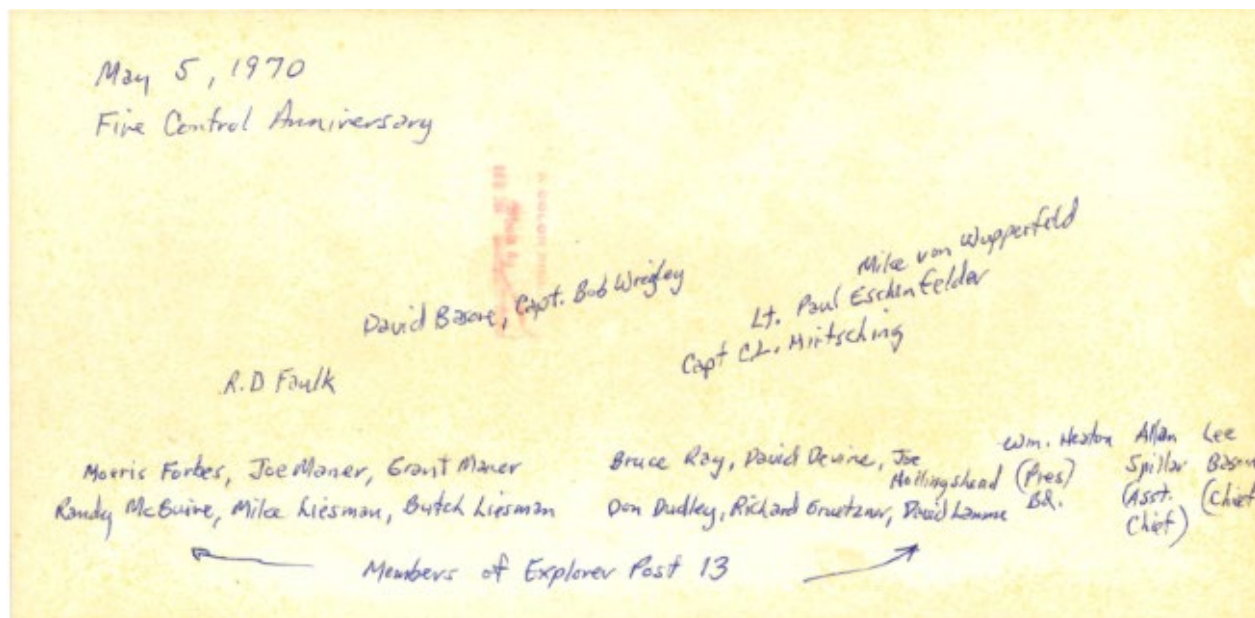 May 5, 1970
Fire Control Anniversary
Mike von Wupperfeld
Lt. Paul Eschenfelder
Capt C.L. Mirtsching
David Basore, Capt. Bob Wrigley
R.D Faulk
Morris Forbes, Joe Maner, Grant Maner
Randy McGuire, Mike Liesman, Butch Liesman
Bruce Ray, David Devine, Joe
Hollingshead
Don Dudley, Richard Gruetzner, David Lamme
Wm. Heaton
(Pres)
Bd.
Allan
Spillar
(Asst.
Chief)
Lee
Basore
(Chief
Members of Explorer Post 13